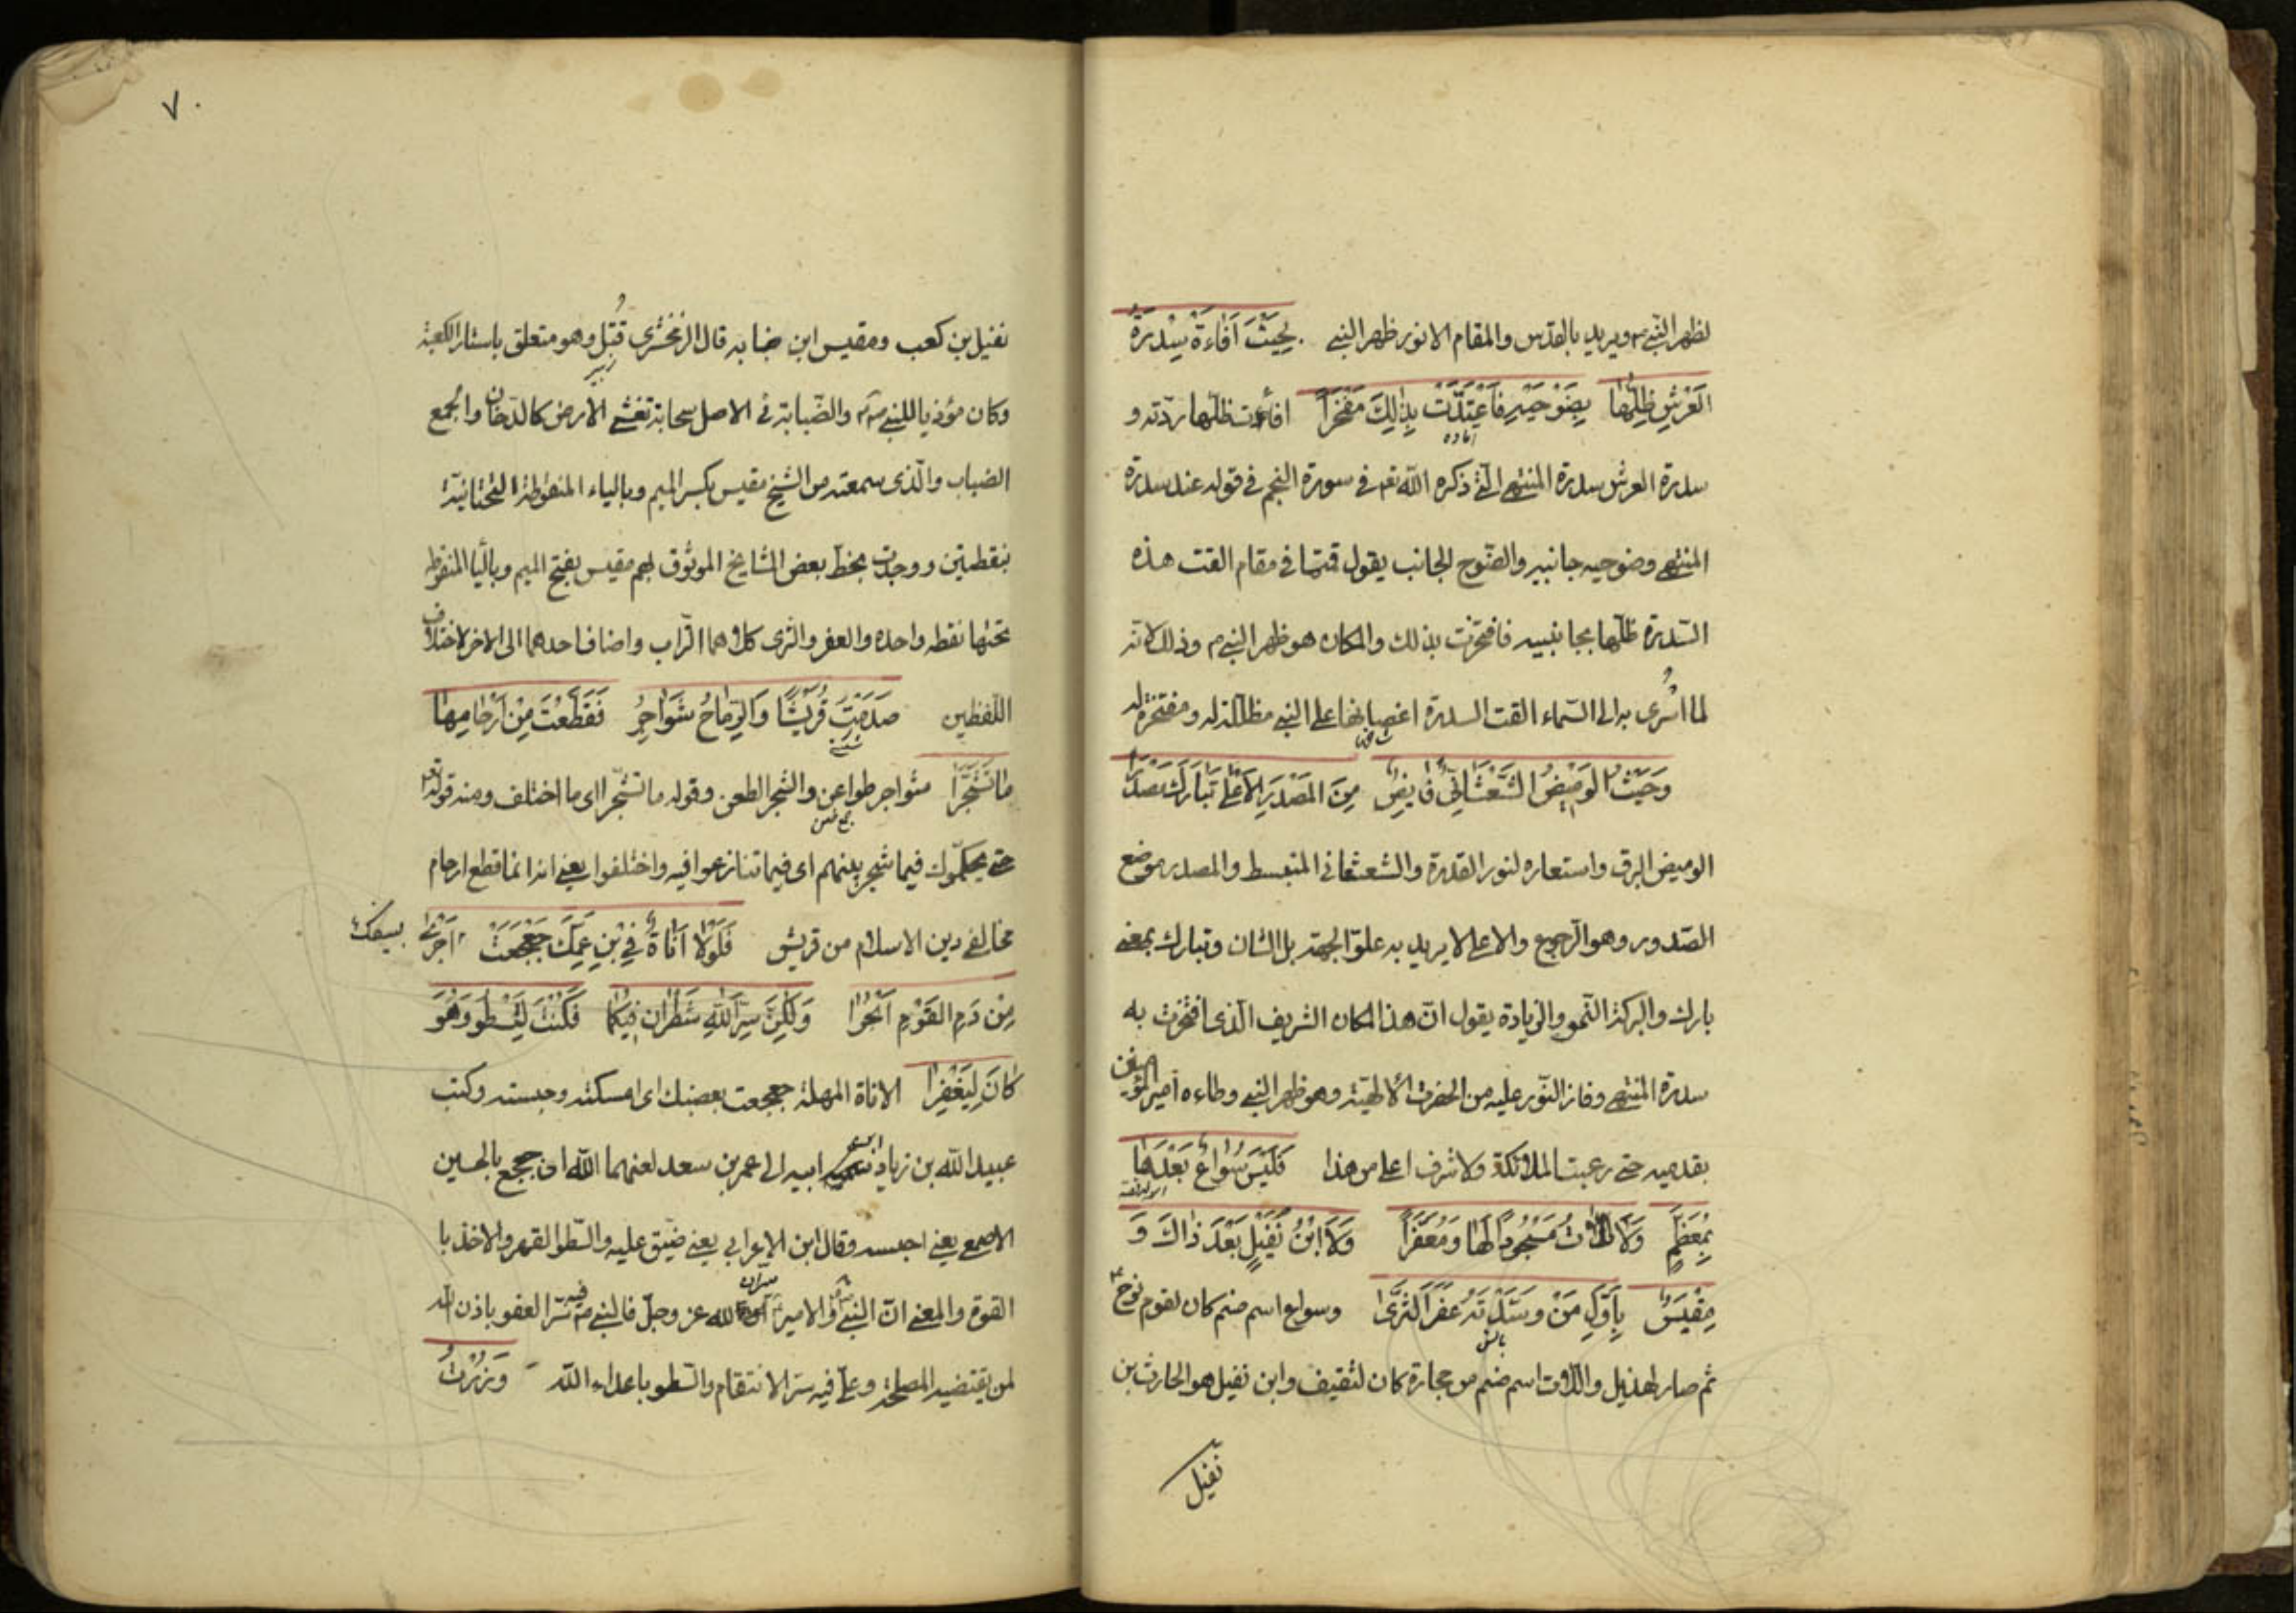 لظهر النبي ص ويريد بالقدس والمقام الانور ظهر النبي بِحَيْثُ اَفَاءَةْ سِدْرَةُ
العَرْشِ ظِلَّهَا بِضَوْجَيْهِ فَاعْتَدَّتْ بِذٰلِكَ مَفْخَرًا افاءت ظلها ردّته و
سدرة العرش سدرة المنتهى الّتي ذكره الله تعه في سورة النجم في قوله عند سدرة
المنتهى وضوجيه جانبيه والضّوج الجانب يقول قمتما في مقام القت هذه
السّدرة ظلّها بجانبيه فافتخرت بذلك والمكان هو ظهر النبي م وذلك لانه
لما اسْرُى به الى السّماء القت السدرة اغصانها على النبي مظللة له ومفتخرة له
وَحَيْثُ الوَمِيْضُ الشَّعْشَعَانِيُّ فَايِضٌ مِنَ المَصْدَرِ الاَعْلٰى تَبَارَكَ مَصْدَرًا
الوميض البرق واستعاره لنور القدرة والشعشعاني المتبسط والمصدر موضع
الصّدور وهو الرجوع والاعلى لا يريد به علوّ الجهة بل الشان وتبارك بمعنى
بارك والبركة النّمو والزيادة يقول انّ هذا المكان الشريف الّذى افتخرت به
سدرة المنتهى وفاز النّور عليه من الحضرت الالهيّة وهو ظهر النبي وطاءه امير المؤمنين
بقدميه حتى رغبت الملائكة ولا شرف اعلى من هذا فَلَيْسَ سُوَاعٌ بَعْدَهَا
بِمُعَظَّمٍ وَلَا اللّاتُ مَسْجُودًا لَهَا وَمُعَفَّرًا وَلَا ابْنُ نُفَيْلٍ بَعْدَ ذَاكَ وَ
مِقْيَسٌ بِاَوَّلِ مَنْ وسَّدْتَهُ عَفَرَ الثَّرٰى وسواع اسم صنم كان لقوم نوح
ثم صار لهذيل واللّات اسم صنم من حجارة كان لثقيف وابن نفيل هو الحارث بن
نفيل
٧٠
نفيل بن كعب ومقيس ابن ضبابه قال الزمخشرى قُتِل وهو متعلق باستار الكعبة
وكان مؤذيا للنبي ص والضّبابة في الاصل سحابة تغشى الارض كالدّخان والجمع
الضباب والّذى سمعته من الشيخ مقيس بكسر الميم وبالياء المنقوطة التّحتانيّة
بنقطتين ووجدت بخط بعض المشايخ الموثوق بهم مقبس بفتح الميم وبالبا المنقوطه
تحتها نقطه واحده والعفر والثرى كلاهما التراب واضاف احدهما الى الاخر لاختلاف
اللّفظين صَدَمْتَ قُرَيْشًا وَالرِّمَاحُ شَوَاجِرُ فَقَطَّعْتَ مِنْ اَرْحَامِهَا
مَا تَشَجَّرَا شواجر طواعن والشجر الطعن وقوله ما تشجّرا اى ما اختلف ومنه قوله تعه
حتى يحكّموك فيما شجر بينهم اى فيما تنازعوا فيه واختلفوا يعنى انه انما قطع ارحام
مخالفى دين الاسلام من قريش فَلَوْلَا اَنَاةٌ فِي بْنِ عَمِّكَ جَعْجَعَتْ
مِنْ دَمِ القَوْمِ اَبْحُرًا وَلٰكِنَّ سِرَّ اللّٰهِ شَطْرَانِ فِيْكُمَا فَكُنْتَ لِتَسْطُو وَهُوَ
كَانَ لِيَغْفِرَا الاناة المهلة جعجعت بعضبك اى امسكته وحبسته وكتب
عبيد الله بن زياد ابيه الى عمر بن سعد لعنهما الله ان جعجع بالحسين
الاصمع يعنى احبسه وقال ابن الاعرابي يعنى ضيّق عليه والسّطوا القهر والاخذ با
القوة والمعنى انّ النبي والامير سرّان لله عز وجلّ فالنبي ص فيه سرّ العفو باذن الله
لمن يقتضيه المصلحة وعلى فيه سرّ الانتقام والسّطو باعداء الله وَزُرْتُ